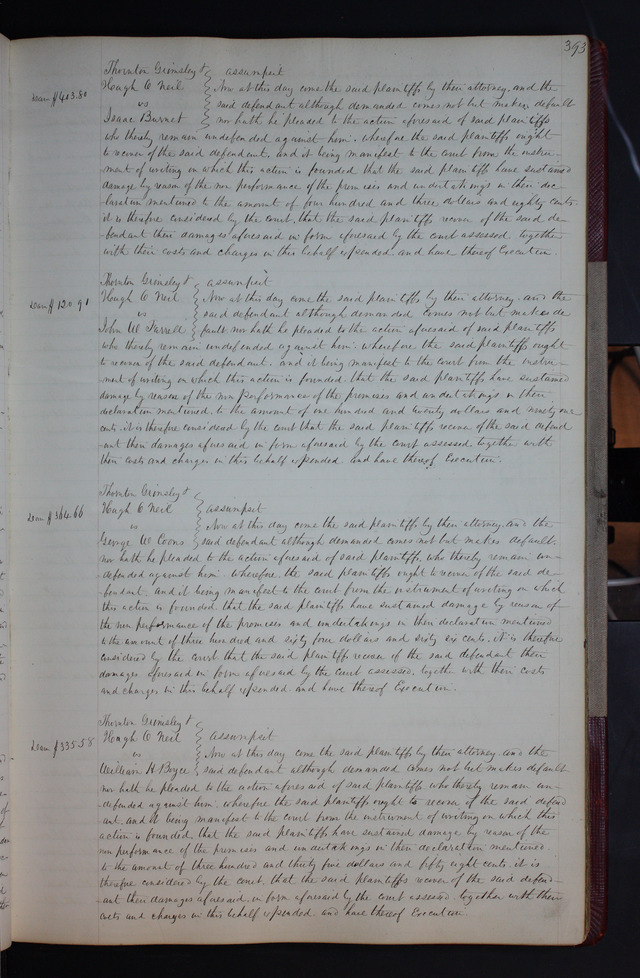 393
Thornton Grimsley &
Hugh O Neil
vs
Isaac Burnet
assumpsit
Dam $403.80
Now at this day come the said plaintiffs by their attorney. and the
said defendant although demanded comes not but makes default
nor hath he pleaded to the action aforesaid of said plaintiffs
who thereby remain undefended against him. wherefore the said plaintiffs ought
to recover of the said defendant. and it being manifest to the court from the instru-
ment of writing on which this action is founded that the said plaintiffs have sustained
damage by reason of the non performance of the premises and undertakings in their dec-
laration mentioned to the amount of four hundred and three dollars and eighty cents.
it is therefore considered by the court. that the said plaintiffs recover of the said de-
fendant their damages aforesaid in form aforesaid by the court assessed. together
with their costs and charges in this behalf expended. and have thereof Execution.
Thornton Grimsley &
Hugh O Neil
vs
John W Farrell
assumpsit
Dam $120.91
Now at this day come the said plaintiffs by their attorney. and the
said defendant although demanded comes not but makes de
fault. nor hath he pleaded to the action aforesaid of said plaintiffs
who thereby remain undefended against him. wherefore the said plaintiffs ought
to recover of the said defendant. and it being manifest to the court from the instru-
ment of writing on which this action is founded. that the said plaintiffs have sustained
damage by reason of the non performance of the premises and undertakings in their
declaration mentioned. to the amount of one hundred and twenty dollars and ninety one
cents. it is therefore considered by the court that the said plaintiffs recover of the said defend
ant their damages aforesaid in form aforesaid by the court assessed. together with
their costs and charges in this behalf expended and have thereof Execution.
Thornton Grimsley &
Hugh O Neil
vs
George W Coons
assumpsit
Dam $364.66
Now at this day come the said plaintiffs by their attorney. and the
said defendant although demanded comes not but makes default.
nor hath he pleaded to the action aforesaid of said plaintiffs. who thereby remain un-
defended against him. wherefore. the said plaintiffs ought to recover of the said de-
fendant. and it being manifest to the court from the instrument of writing on which
this action is founded. that the said plaintiffs have sustained damage by reason of
the non performance of the premises and undertakings in their declaration mentioned
to the amount of three hundred and sixty four dollars and sixty six cents. it is therefore
considered by the court that the said plaintiffs recover of the said defendant their
damages aforesaid in form aforesaid by the court assessed. together with their costs
and charges in this behalf expended. and have thereof Execution.
Thornton Grimsley &
Hugh O Neil
vs
William H Boyce
assumpsit
Dam $335.58
Now at this day come the said plaintiffs by their attorney. and the
said defendant although demanded comes not but makes default
nor hath he pleaded to the action aforesaid of said plaintiffs who thereby remain un-
defended against him. wherefore the said plaintiffs ought to recover of the said defend
ant. and it being manifest to the court from the instrument of writing on which this
action is founded. that the said plaintiffs have sustained damage by reason of the
non performance of the premises and undertakings in their declaration mentioned
to the amount of three hundred and thirty five dollars and fifty eight cents. it is
therefore considered by the court. that the said plaintiffs recover of the said defend-
ant their damages aforesaid. in form aforesaid by the court assessed together with their
costs and charges in this behalf expended. and have thereof Execution.